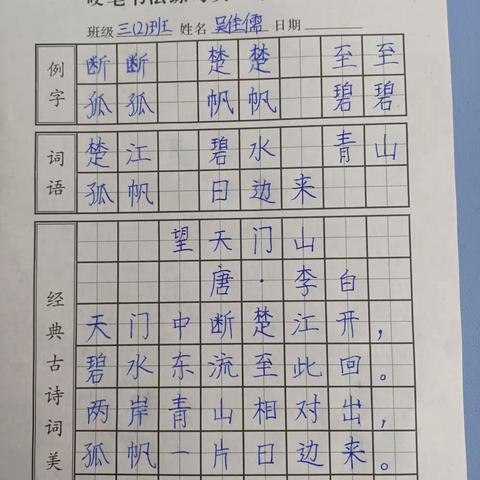 硬笔书法练习
班级 三(2)班 姓名 吴佳儒 日期
例字
断 断 楚 楚 至 至
孤 孤 帆 帆 碧 碧
词语
楚 江 碧 水 青 山
孤 帆 日 边 来
经典古诗词美
望 天 门 山
唐 · 李 白
天 门 中 断 楚 江 开 ，
碧 水 东 流 至 此 回 。
两 岸 青 山 相 对 出 ，
孤 帆 一 片 日 边 来 。